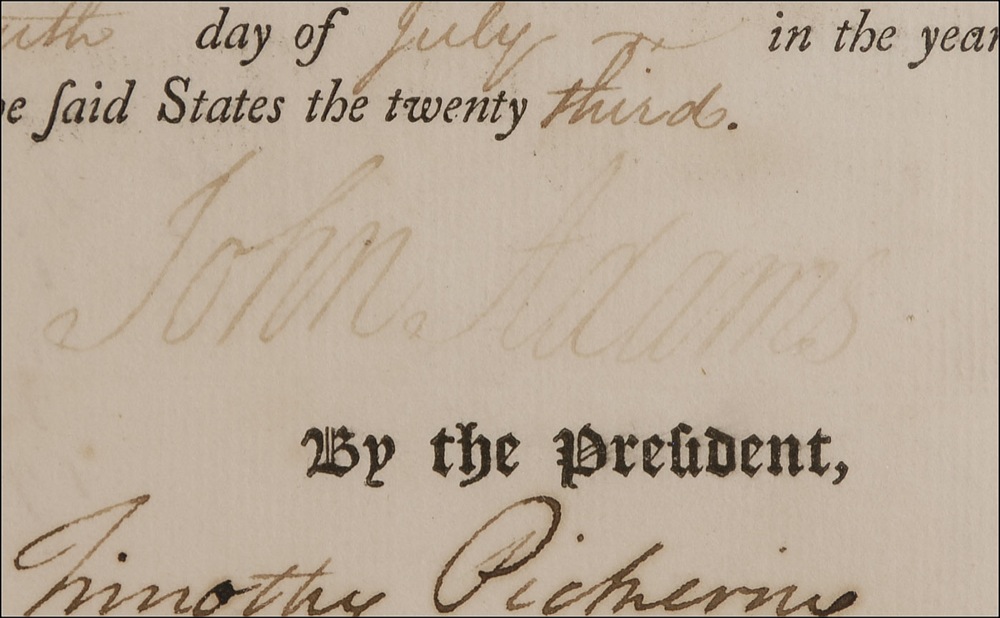 day of July in the year
ſaid States the twenty third.
John Adams
By the Preſident,
Timothy Pickering